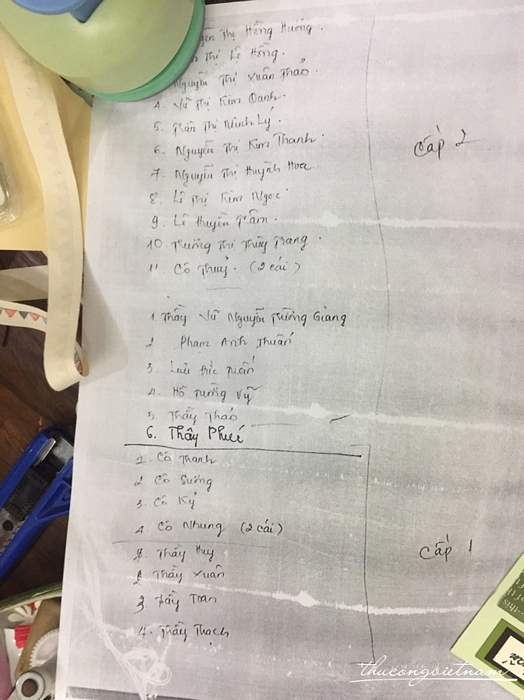 Thị Hồng Hương.
Thị Lệ Hồng.
Nguyễn Thị Xuân Thảo.
4. Vũ Thị Kim Oanh.
5. Trần Thị Minh Lý.
6. Nguyễn Thị Kim Thanh.
7. Nguyễn Thị Huỳnh Hoa
8. Lê Thị Kim Ngọc
9. Lê Huyền Trâm.
10. Trương Thị Thùy Trang.
11. Cô Thuỷ. (2 cái)
Cấp 2
1. Thầy Vũ Nguyễn Tường Giang
2 Phạm Anh Thuấn
3. Tuấn
4. Hồ Tường Vỹ
5. Thầy Thảo
6. Thầy Phú
1. Cô Thanh
2 Cô Sương
3. Cô Kỷ
4. Cô Nhung (2 cái)
1 Thầy Huy
2 Thầy Xuân
3 Thầy Toàn
4. Thầy Thạch
Cấp 1
thucongvietnam